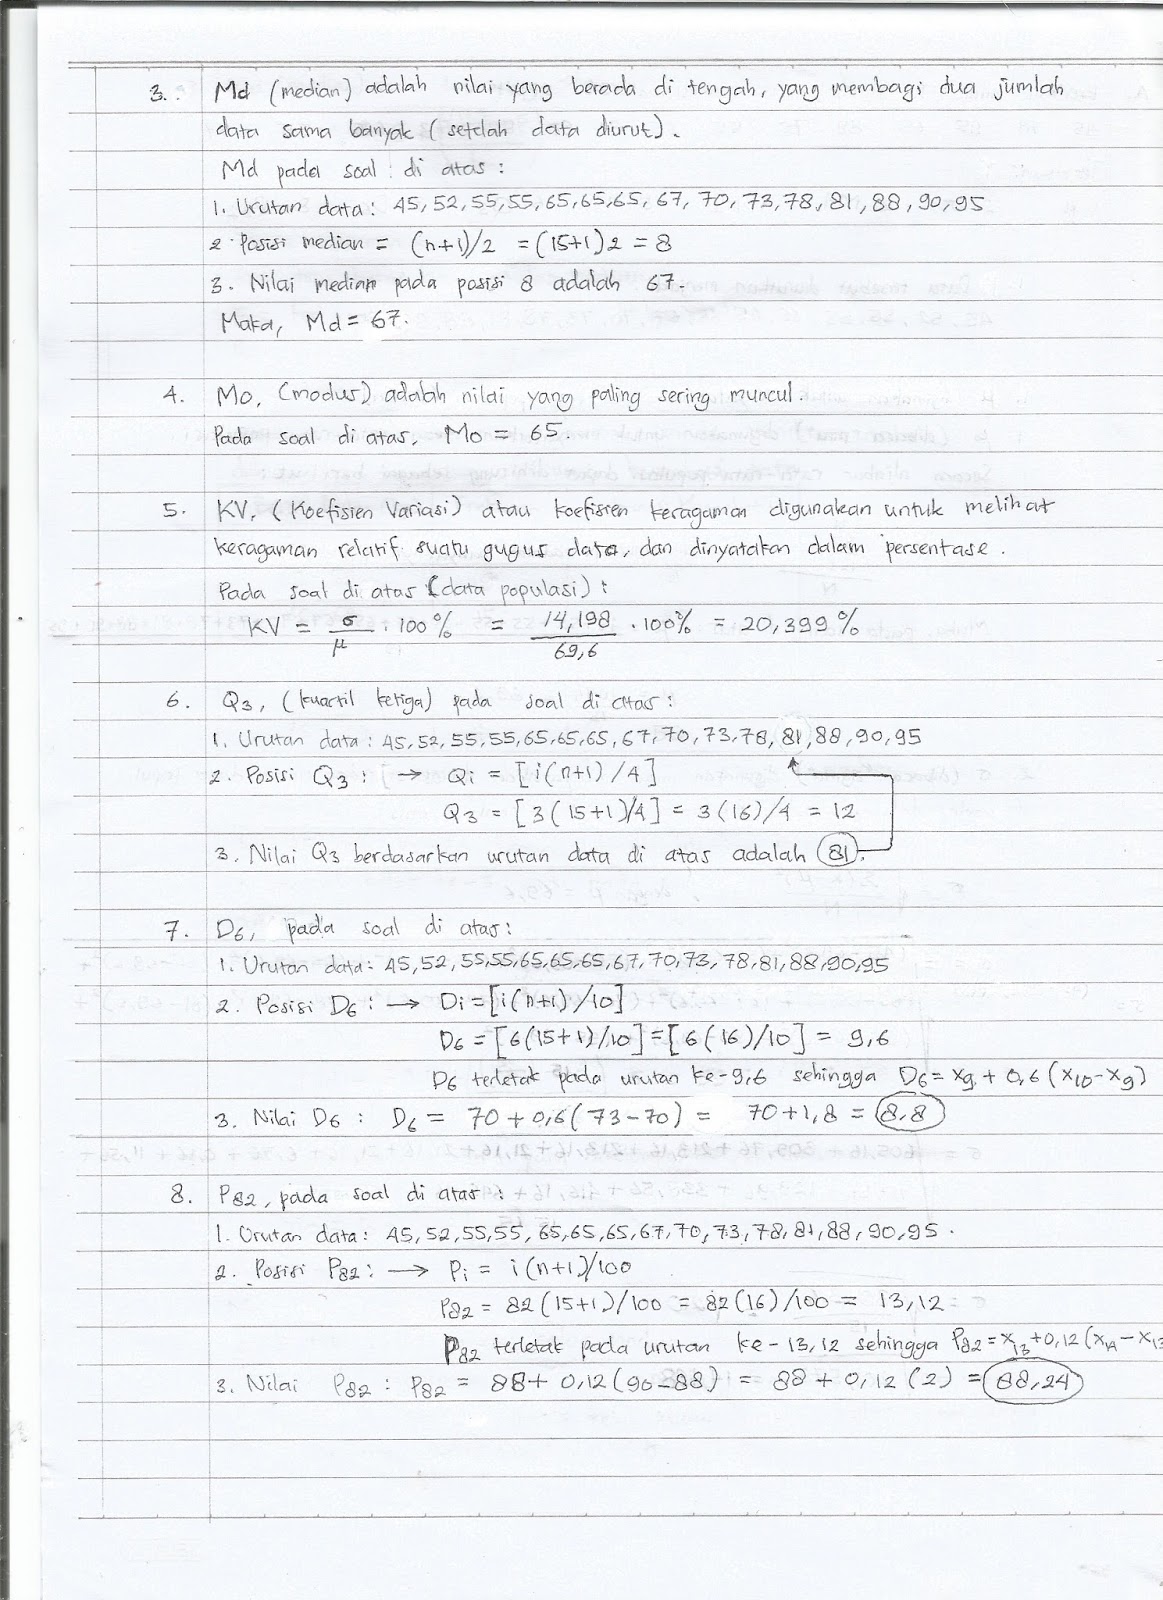 3. Md (median) adalah nilai yang berada di tengah, yang membagi dua jumlah
data sama banyak (setelah data diurut).
Md pada soal di atas :
1. Urutan data : 45, 52, 55, 55, 65, 65, 65, 67, 70, 73, 78, 81, 88, 90, 95
2. Posisi median = (n+1)/2 = (15+1)2 = 8
3. Nilai median pada posisi 8 adalah 67.
Maka, Md = 67.
4. Mo, (modus) adalah nilai yang paling sering muncul.
Pada soal di atas, Mo = 65.
5. KV, (Koefisien Variasi) atau koefisien keragaman digunakan untuk melihat
keragaman relatif suatu gugus data, dan dinyatakan dalam persentase.
Pada soal di atas (data populasi) :
KV = σ/μ · 100% = 14,198/69,6 · 100% = 20,399 %
6. Q3, (kuartil ketiga) pada soal di atas :
1. Urutan data : 45, 52, 55, 55, 65, 65, 65, 67, 70, 73, 78, 81, 88, 90, 95
2. Posisi Q3 : → Qi = [i(n+1) /4]
Q3 = [3(15+1)/4] = 3(16)/4 = 12
3. Nilai Q3 berdasarkan urutan data di atas adalah 81.
7. D6, pada soal di atas :
1. Urutan data : 45, 52, 55, 55, 65, 65, 65, 67, 70, 73, 78, 81, 88, 90, 95
2. Posisi D6 : → Di = [i(n+1) /10]
D6 = [6(15+1)/10] = [6(16)/10] = 9,6
D6 terletak pada urutan ke-9,6 sehingga D6 = x9 + 0,6 (x10 - x9)
3. Nilai D6 : D6 = 70 + 0,6(73-70) = 70+1,8 = 8,8
8. P82, pada soal di atas :
1. Urutan data : 45, 52, 55, 55, 65, 65, 65, 67, 70, 73, 78, 81, 88, 90, 95.
2. Posisi P82 : → Pi = i(n+1)/100
P82 = 82(15+1)/100 = 82(16)/100 = 13,12
P82 terletak pada urutan ke-13,12 sehingga P82 = x13 + 0,12 (x14 - x13
3. Nilai P82 : P82 = 88 + 0,12(90-88) = 88 + 0,12 (2) = 88,24